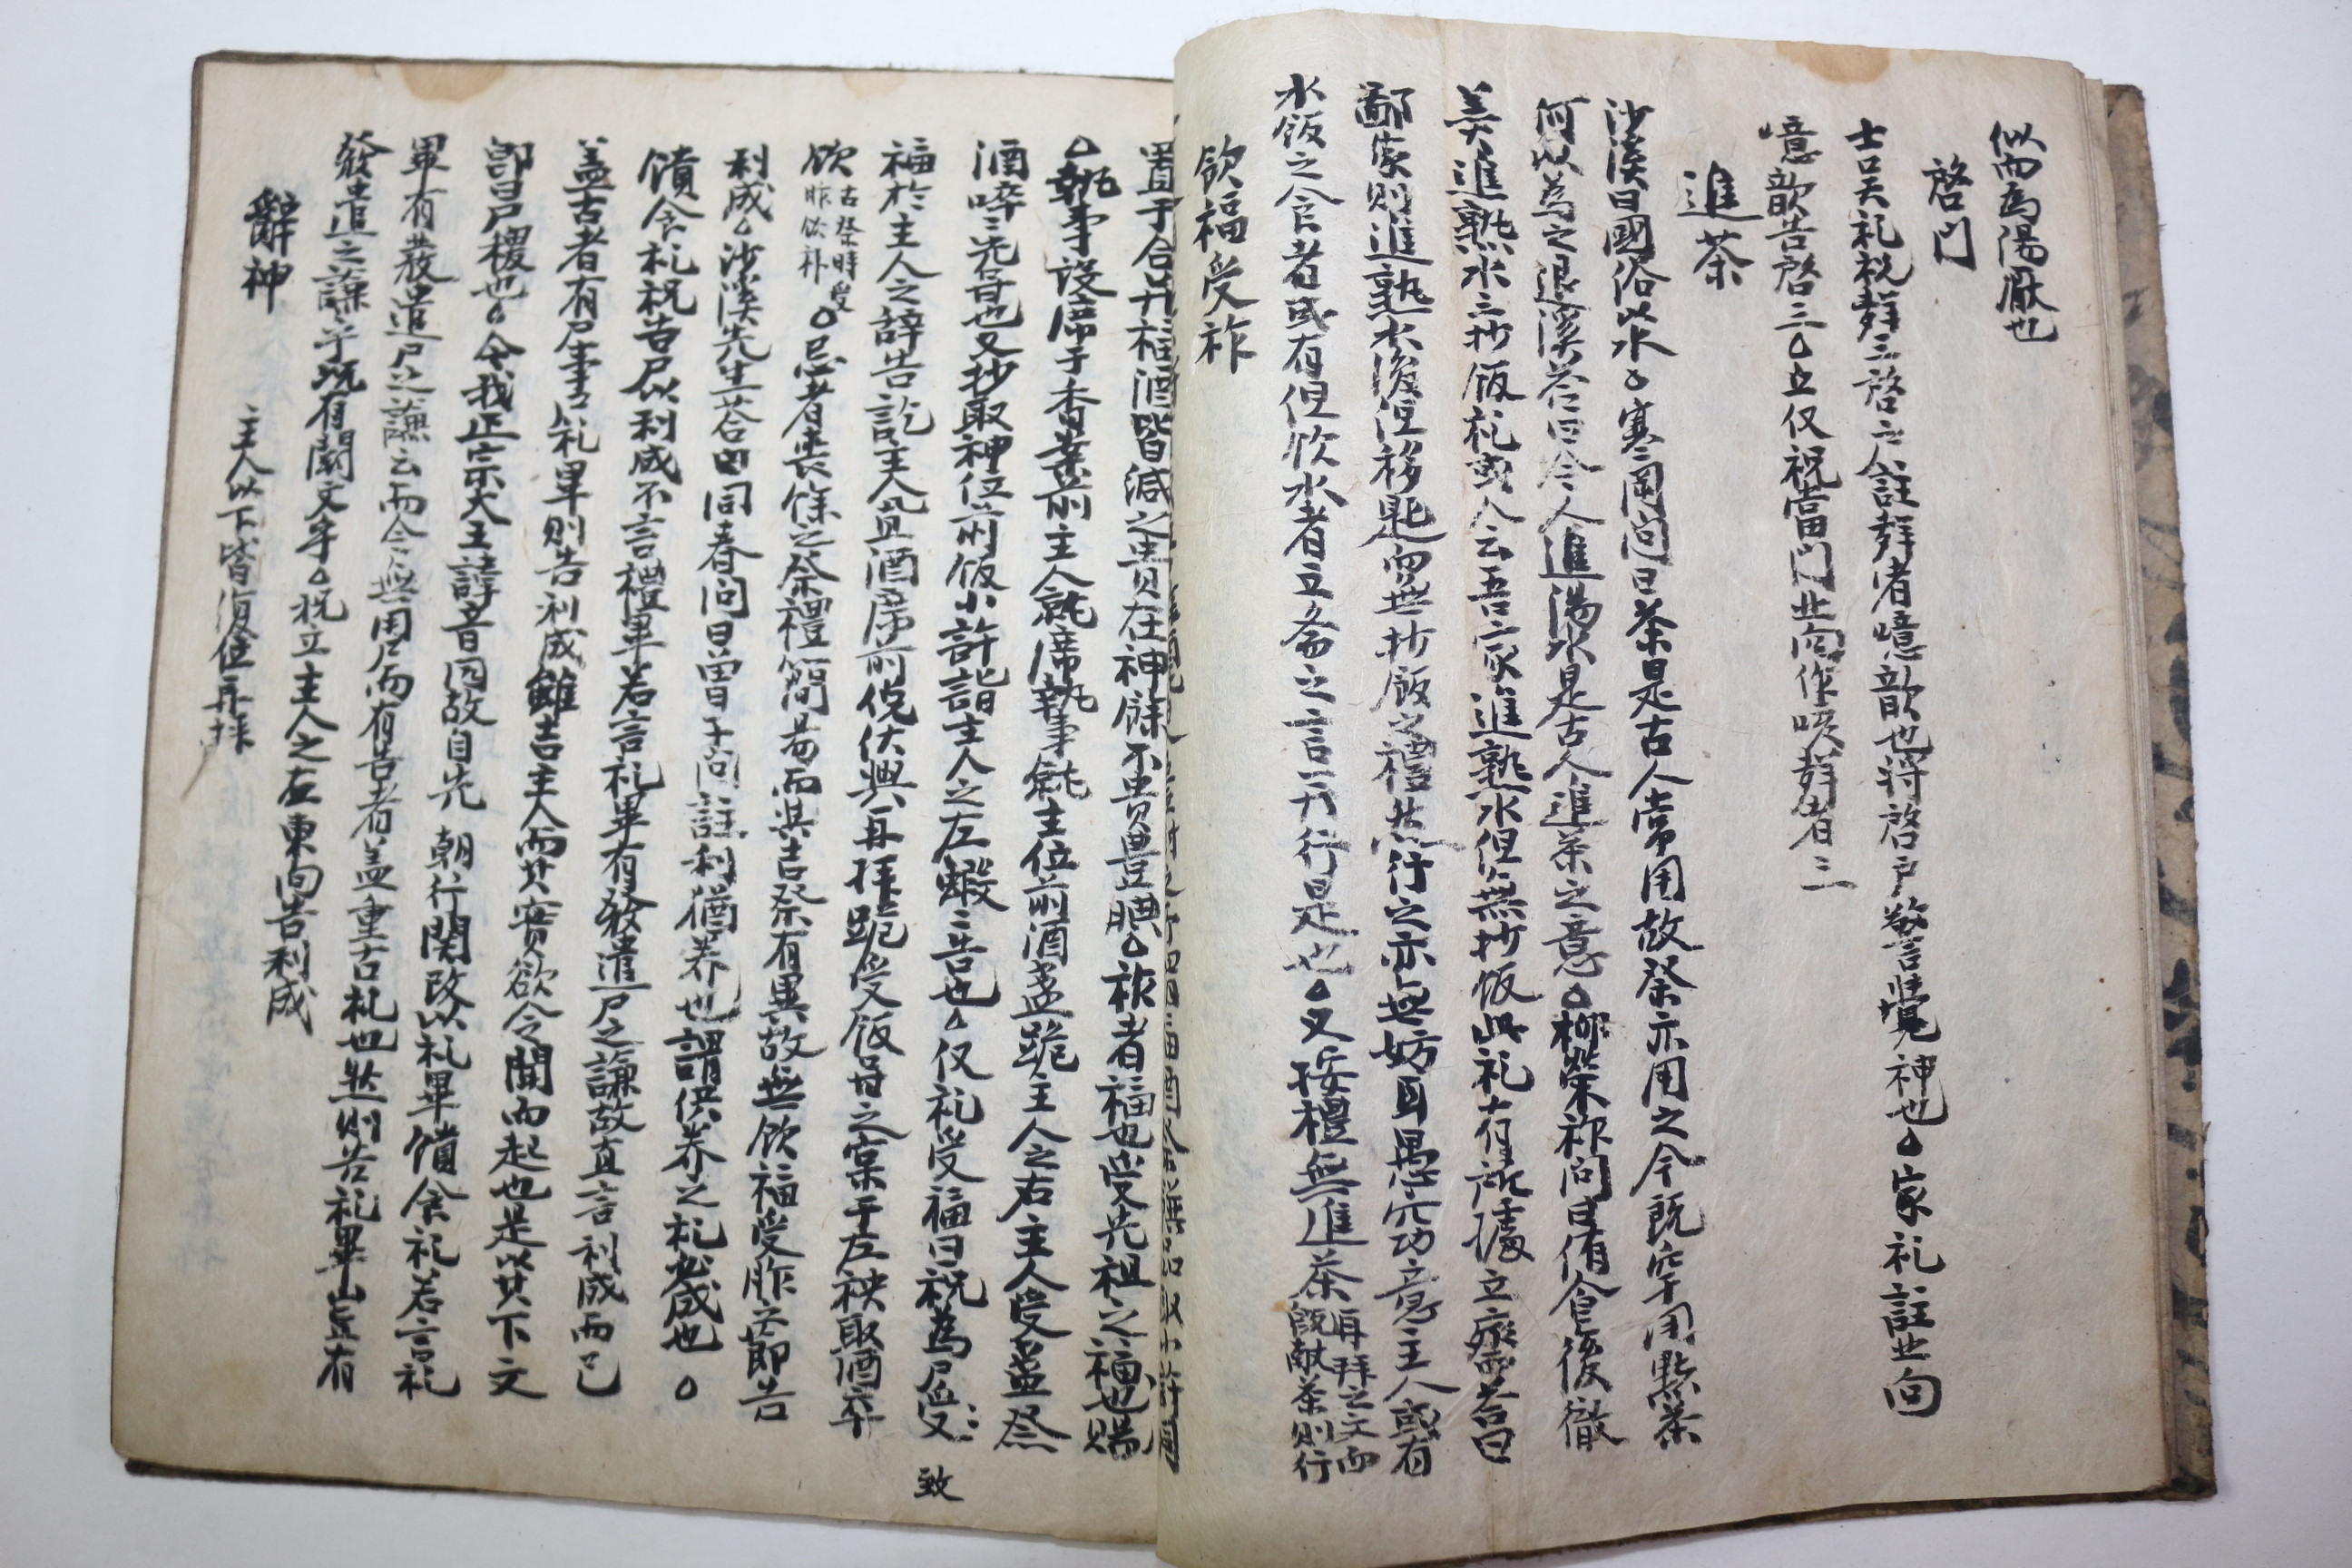 似而爲陽厭也
啓門
士吴礼祝聲三啓户註聲者噫歆也将啓户警覺神也○家礼註北向
噫歆告啓三○立仅祝當門北向作咳聲者三
進茶
沙溪曰國俗以水○寒岡問曰茶是古人常用故祭亦用之今既罕用點茶
何以爲之退溪答曰今人進湯水是古人進茶之意○柳榮袗問曰侑食後徹
羹進熟水三抄飯礼或人云吾家進熟水但無抄飯此礼有所據立齋答曰
鄙家則進熟水後但移匙而無抄飯之禮然行之亦無妨耳愚 意主人或有
水飯之食者或有但飲水者立斎之言 行是也○又 禮無進茶再拜之文而既献茶則行
飲福受祚
置于合并福酒皆減之貴在神餘不貴豊腆○祚者福也受先祖之福也賜
○執事設席于香案前主人就席執事就主位前酒盞跪主人之右主人受盞祭
酒啐之先甞也又抄取神位前飯小許詣主人之左嘏之告也○仅礼受福曰祝爲尸受
福於主人之辞告訖主人 酒席前俛伏興再拜跪受飯甞之棠于左袂取酒卒 致
飲古祭時受胙飲 ○忌者喪餘之祭禮簡易而與吉祭有異故無飲福受胙之節告
利成○沙溪先生答 同春問曰曽子問註利猶养也謂供养之礼成也○
饋食礼祝告尸以利成不言禮畢若言礼畢有發遣尸之謙故直言利成而已
盖古者有尸事 礼畢則告利成雖告主人而其實欲令 聞而起也是以其下文
即曰尸稷也○今我正宗大王諱音同故自先 朝行関改以礼畢饋食礼若言礼
畢有發遣尸之謙云而今無用尸而有告者盖重古礼也然則告礼畢豈有
發遣之謙乎 有闕文乎○祝立主人之左東向告利成
辭神
主人以下皆復位再拜